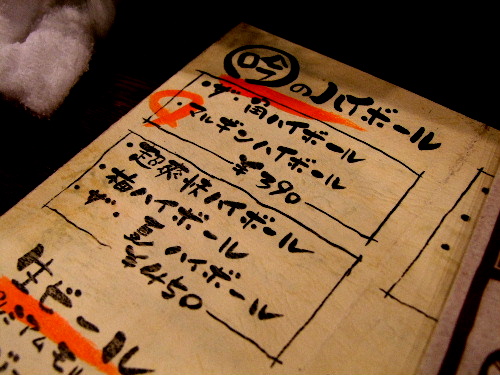 吟のハイボール
・ザ・角ハイボール
・マルギンハイボール
¥390
・超爽快ハイボール
・梅ハイボール
・ザ・夏ハイボール
¥450
生ビール